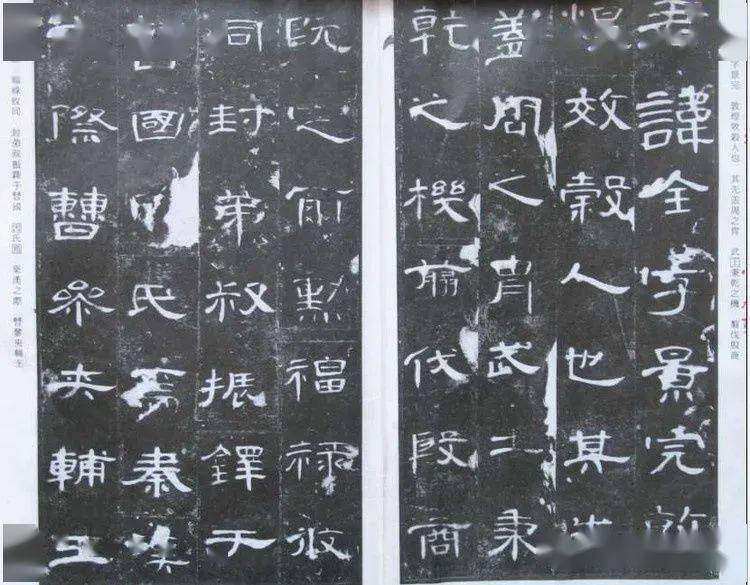 字景完 敦煌效穀人也 其先盖周之胄 武王秉乾之機 翦伐殷商
君諱全字景完敦
煌效穀人也其先
蓋周之胄武王秉
乾之機翦伐殷商
既定爾勳福祿攸
同封弟叔振鐸于
國因氏焉秦漢
際曹參夾輔王
福祿攸同 封弟叔振鐸于曹國 因氏焉 秦漢之際 曹參夾輔王